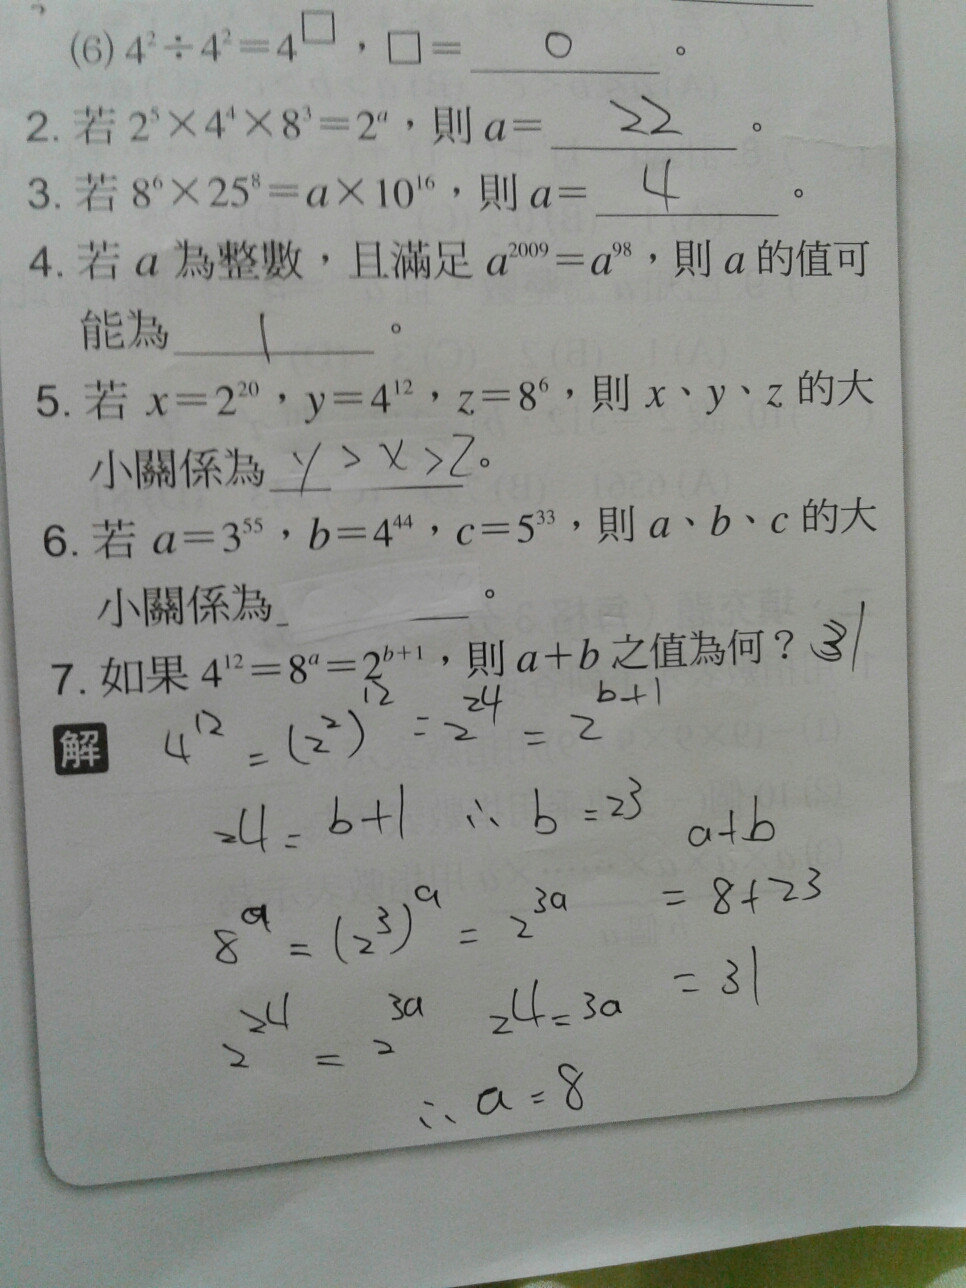 (6) 4²÷4²=4^□，□= 0 。
2. 若 2⁵×4⁴×8³=2ᵃ，則 a= 22 。
3. 若 8⁶×25⁸=a×10¹⁶，則 a= 4 。
4. 若 a 為整數，且滿足 a²⁰⁰⁹=a⁹⁸，則 a 的值可
能為 1 。
5. 若 x=2²⁰，y=4¹²，z=8⁶，則 x、y、z 的大
小關係為 y > x > z。
6. 若 a=3⁵⁵，b=4⁴⁴，c=5³³，則 a、b、c 的大
小關係為 。
7. 如果 4¹²=8ᵃ=2ᵇ⁺¹，則 a+b 之值為何？ 31
解 4¹² = (2²)¹² = 2²⁴ = 2ᵇ⁺¹
24 = b+1 ∴ b = 23
a+b
8ᵃ = (2³)ᵃ = 2³ᵃ
= 8+23
2²⁴ = 2³ᵃ 24 = 3a
= 31
∴ a = 8